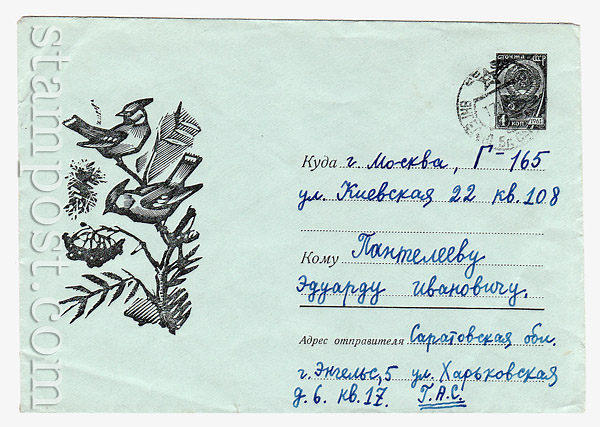 stampost.com
почта СССР
4 коп
Куда г. Москва, Г-165
ул. Киевская 22 кв. 108
Кому Пантелееву
Эдуарду Ивановичу.
Адрес отправителя Саратовская обл.
г. Энгельс, 5 ул. Харьковская
д. 6. кв. 17. Г.А.С.